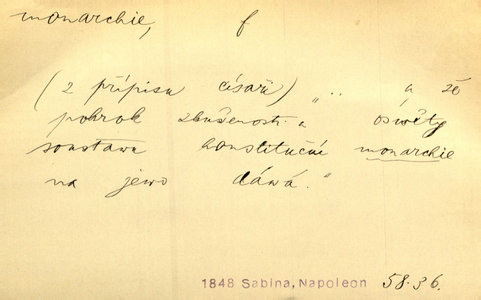 monarchie, f
(z přípisu císaři) „.. a že
pokrok zkušenosti a óswěty
soustawu konstituční monarchie
na jewo dáwá."
1848 Sabina, Napoleon 58.36.